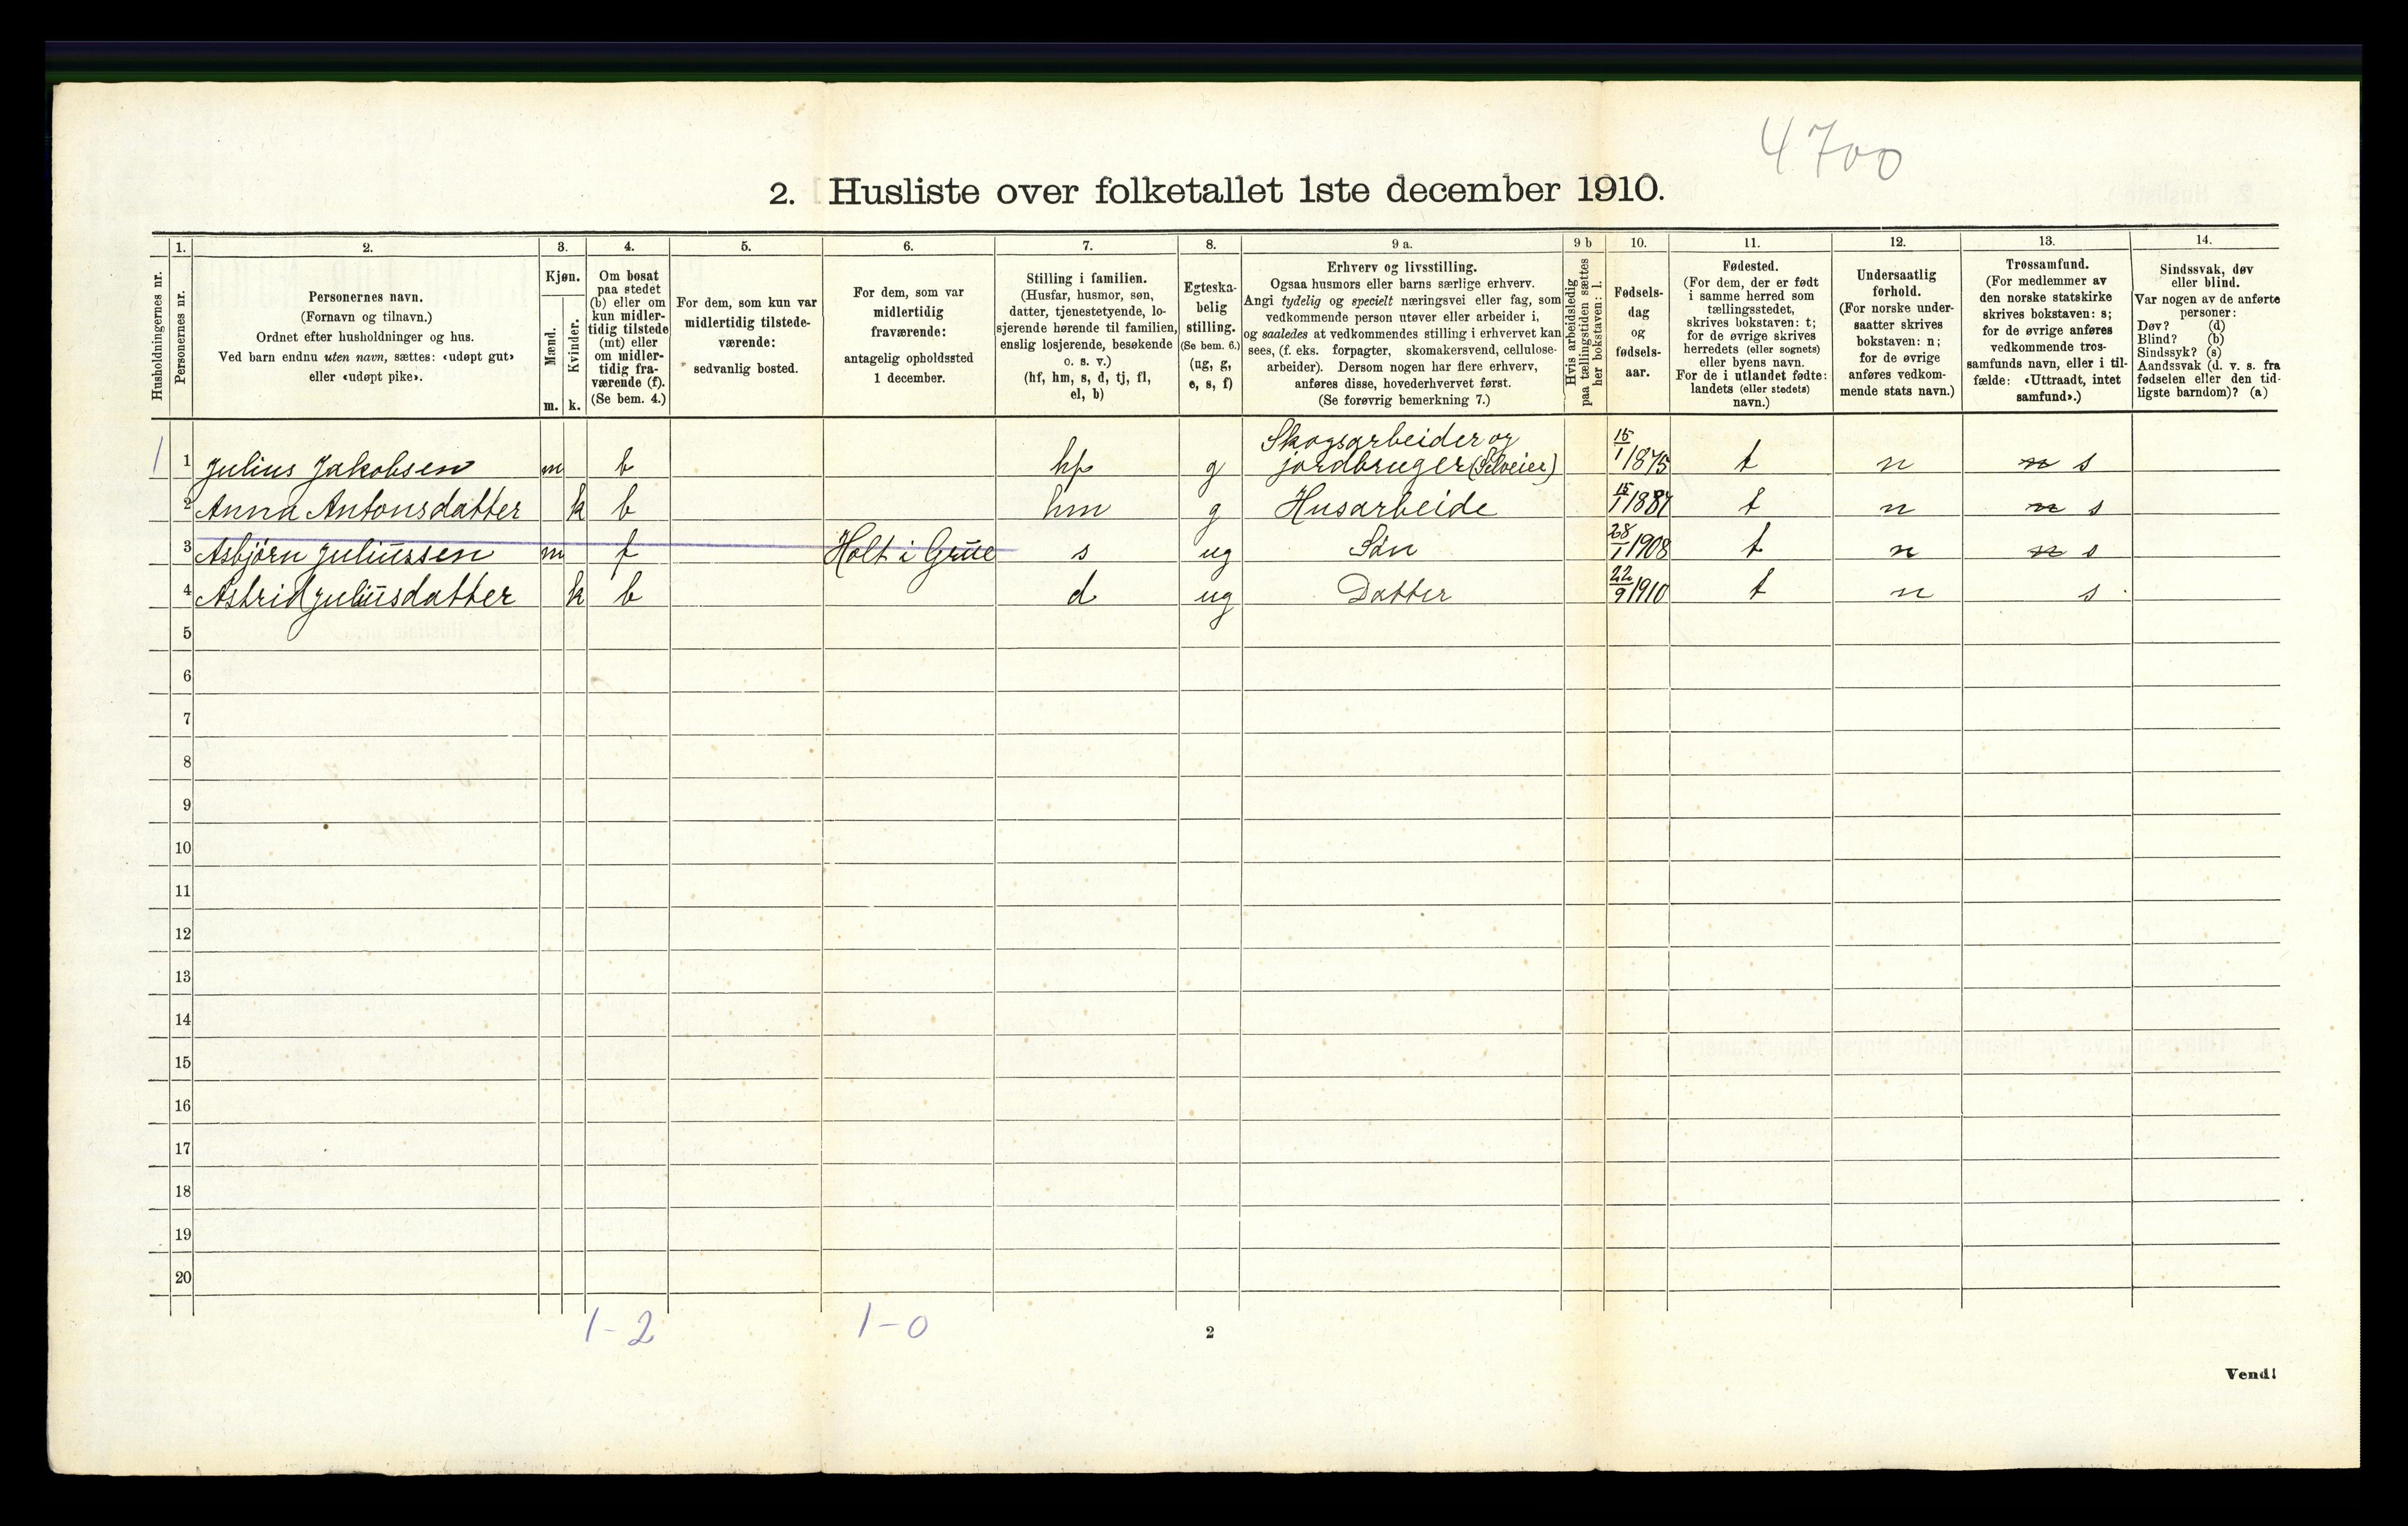 4700
2. Husliste over folketallet 1ste december 1910.
Husholdningernes nr.
1.
Personernes nr.
2.
Personernes navn.
(Fornavn og tilnavn.)
Ordnet efter husholdninger og hus.
Ved barn endnu uten navn, sættes: «udøpt gut»
eller «udøpt pike».
3.
Kjøn.
Mænd.
Kvinder.
m.
k.
4.
Om bosat
paa stedet
(b) eller om
kun midler-
tidig tilstede
(mt) eller
om midler-
tidig fra-
værende (f).
(Se bem. 4.)
5.
For dem, som kun var
midlertidig tilstede-
værende:
sedvanlig bosted.
6.
For dem, som var
midlertidig
fraværende:
antagelig opholdssted
1 december.
7.
Stilling i familien.
(Husfar, husmor, søn,
datter, tjenestetyende, lo-
sjerende hørende til familien,
enslig losjerende, besøkende
o. s. v.)
(hf, hm, s, d, tj, fl,
el, b)
8.
Egteska-
belig
stilling.
(Se bem. 6.)
(ug, g,
e, s, f)
9 a.
Erhverv og livsstilling.
Ogsaa husmors eller barns særlige erhverv.
Angi tydelig og specielt næringsvei eller fag, som
vedkommende person utøver eller arbeider i,
og saaledes at vedkommendes stilling i erhvervet kan
sees, (f. eks. forpagter, skomakersvend, cellulose-
arbeider). Dersom nogen har flere erhverv,
anføres disse, hovederhvervet først.
(Se forøvrig bemerkning 7.)
9 b
Hvis arbeidsledig
paa tællingstiden sættes
her bokstaven: l.
10.
Fødsels-
dag
og
fødsels-
aar.
11.
Fødested.
(For dem, der er født
i samme herred som
tællingsstedet,
skrives bokstaven: t;
for de øvrige skrives
herredets (eller sognets)
eller byens navn.
For de i utlandet fødte:
landets (eller stedets)
navn.)
12.
Undersaatlig
forhold.
(For norske under-
saatter skrives
bokstaven: n;
for de øvrige
anføres vedkom-
mende stats navn.)
13.
Trossamfund.
(For medlemmer av
den norske statskirke
skrives bokstaven: s;
for de øvrige anføres
vedkommende tros-
samfunds navn, eller i til-
fælde: «Uttraadt, intet
samfund».)
14.
Sindssvak, døv
eller blind.
Var nogen av de anførte
personer:
Døv? (d)
Blind? (b)
Sindssyk? (s)
Aandssvak (d. v. s. fra
fødselen eller den tid-
ligste barndom)? (a)
1 1 Julius Jakobsen m b hf g Skogsarbeider og
jordbruger (Selveier) 15/1 1875 t n n s
2 Anna Antonsdatter k b hm g Husarbeide 15/1 1887 t n n s
3 Asbjørn Juliussen m f Holt i Grue s ug Søn 28/1 1908 t n n s
4 Astrid Juliusdatter k b d ug Datter 22/9 1910 t n s
5
6
7
8
9
10
11
12
13
14
15
16
17
18
19
20
1-2 1-0
2
Vend!